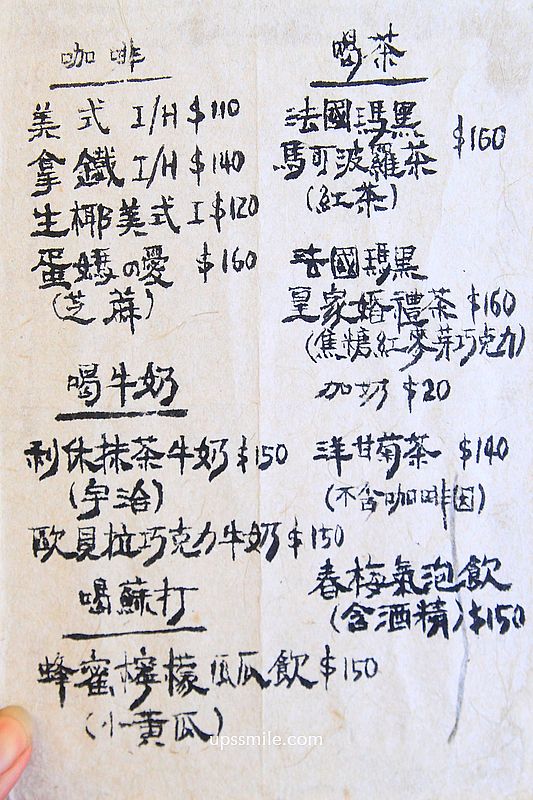 咖啡
美式 I/H $110
拿鐵 I/H $140
生椰美式 I $120
蛋媽の愛 $160
(芝蔴)
喝牛奶
利休抹茶牛奶 $150
(宇治)
歐貝拉巧克力牛奶 $150
喝蘇打
蜂蜜檸檬瓜瓜飲 $150
(小黃瓜)
喝茶
法國瑪黑
馬可波羅茶 $160
(紅茶)
法國瑪黑
皇家婚禮茶 $160
(焦糖紅麥芽巧克力)
加奶 $20
洋甘菊茶 $140
(不含咖啡因)
春梅氣泡飲
(含酒精) $150
upssmile.com